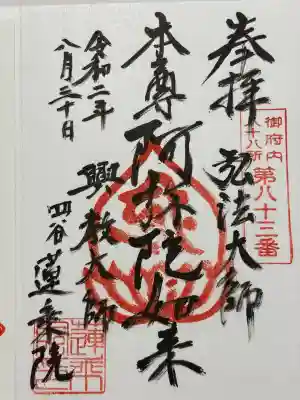 奉拝
弘法大師
御府内
八十八所
第八十三番
本尊阿弥陀如来
興教大師
令和二年
八月三十日
四谷蓮乗院
蓮乗院